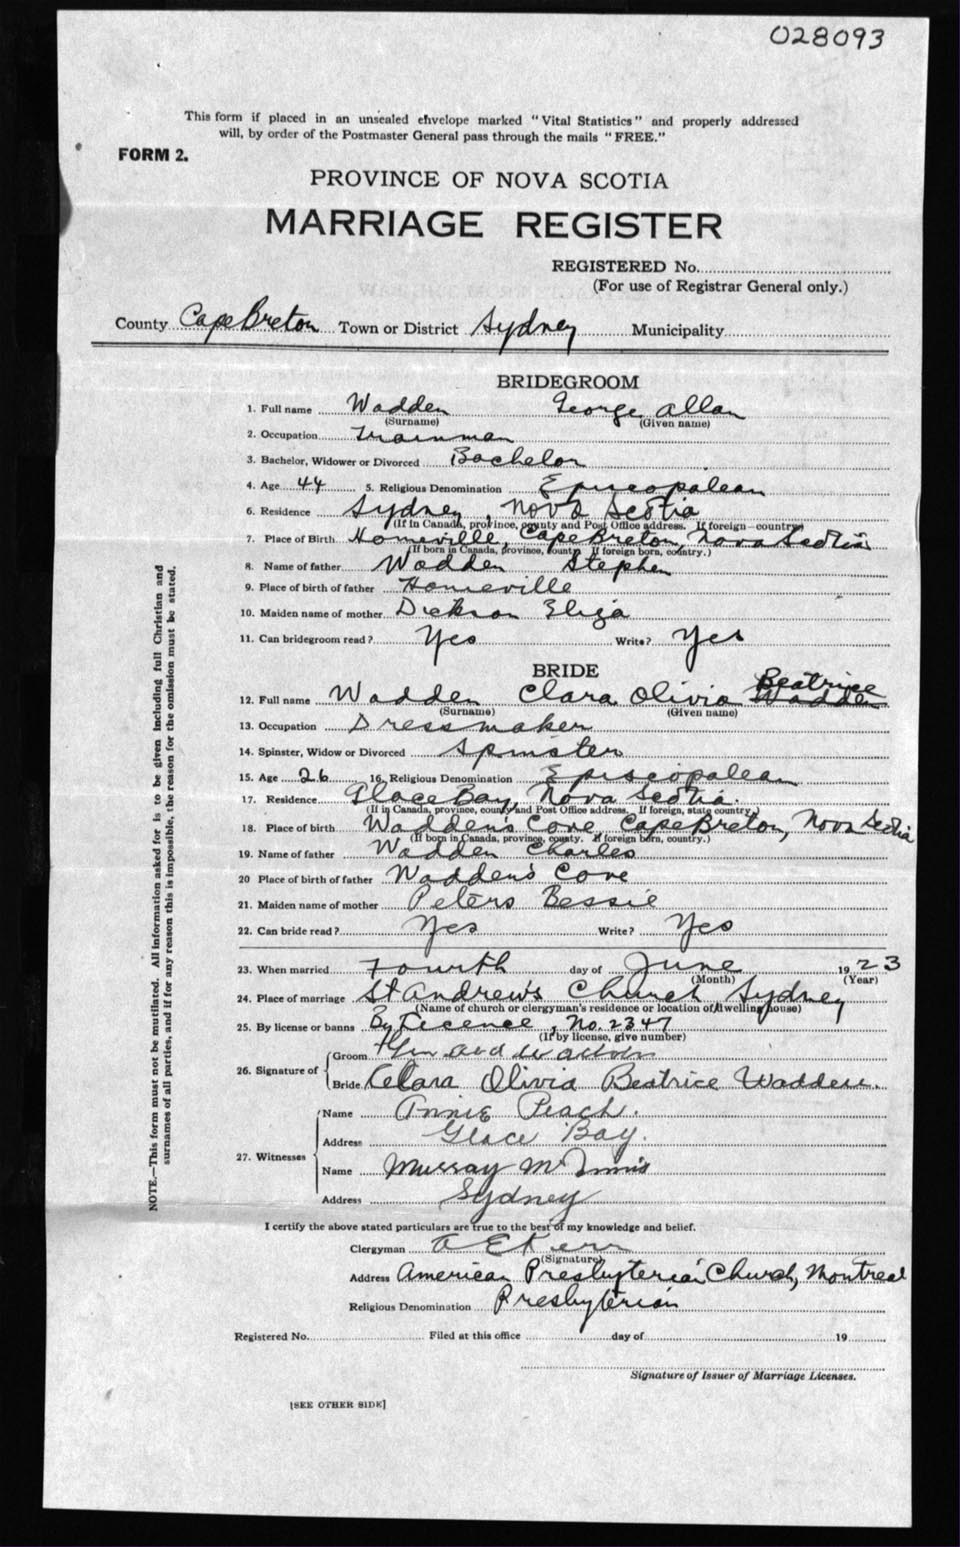 028093
This form if placed in an unsealed envelope marked "Vital Statistics" and properly addressed
will, by order of the Postmaster General pass through the mails "FREE."
FORM 2.
PROVINCE OF NOVA SCOTIA
MARRIAGE REGISTER
REGISTERED No.
(For use of Registrar General only.)
County Cape Breton Town or District Sydney Municipality
BRIDEGROOM
1. Full name Wadden George Allan
(Surname) (Given name)
2. Occupation Trainman
3. Bachelor, Widower or Divorced Bachelor
4. Age 44 5. Religious Denomination Episcopalean
6. Residence Sydney, Nova Scotia
(If in Canada, province, county and Post Office address. If foreign—country)
7. Place of Birth Homeville, Cape Breton, Nova Scotia
(If born in Canada, province, county. If foreign born, country.)
8. Name of father Wadden Stephen
9. Place of birth of father Homeville
10. Maiden name of mother Dickson Eliza
11. Can bridegroom read? Yes Write? Yes
BRIDE
Beatrice
12. Full name Wadden Clara Olivia Wadden
(Surname) (Given name)
13. Occupation Dressmaker
14. Spinster, Widow or Divorced Spinster
15. Age 26 16. Religious Denomination Episcopalean
17. Residence Glace Bay, Nova Scotia.
(If in Canada, province, county and Post Office address. If foreign, state country.)
18. Place of birth Wadden's Cove Cape Breton, Nova Scotia
(If born in Canada, province, county. If foreign born, country.)
19. Name of father Wadden Charles
20 Place of birth of father Wadden's Cove
21. Maiden name of mother Peters Bessie
22. Can bride read? Yes Write? Yes
23. When married Fourth day of June 1923
(Month) (Year)
24. Place of marriage St Andrew's Church Sydney
(Name of church or clergyman's residence or location of dwelling house)
25. By license or banns By Licence, No. 2347
(If by license, give number)
26. Signature of
Groom
Bride Clara Olivia Beatrice Wadden.
27. Witnesses
Name Annie Peach.
Address Glace Bay.
Name Murray McInnis
Address Sydney
I certify the above stated particulars are true to the best of my knowledge and belief.
Clergyman A E Kerr
(Signature)
Address American Presbyterian Church, Montreal
Religious Denomination Presbyterian
Registered No. Filed at this office day of 19
Signature of Issuer of Marriage Licenses.
[SEE OTHER SIDE]
NOTE.—This form must not be mutilated. All information asked for is to be given including full Christian and
surnames of all parties, and if for any reason this is impossible, the reason for the omission must be stated.